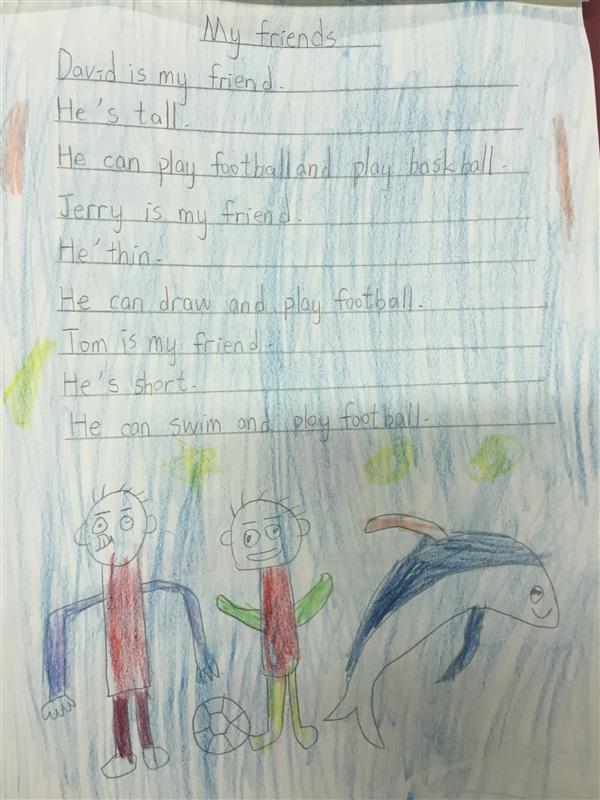 My friends
David is my friend.
He's tall.
He can play football and play baskball.
Jerry is my friend.
He'thin.
He can draw and play football.
Tom is my friend.
He's short.
He can swim and play football.